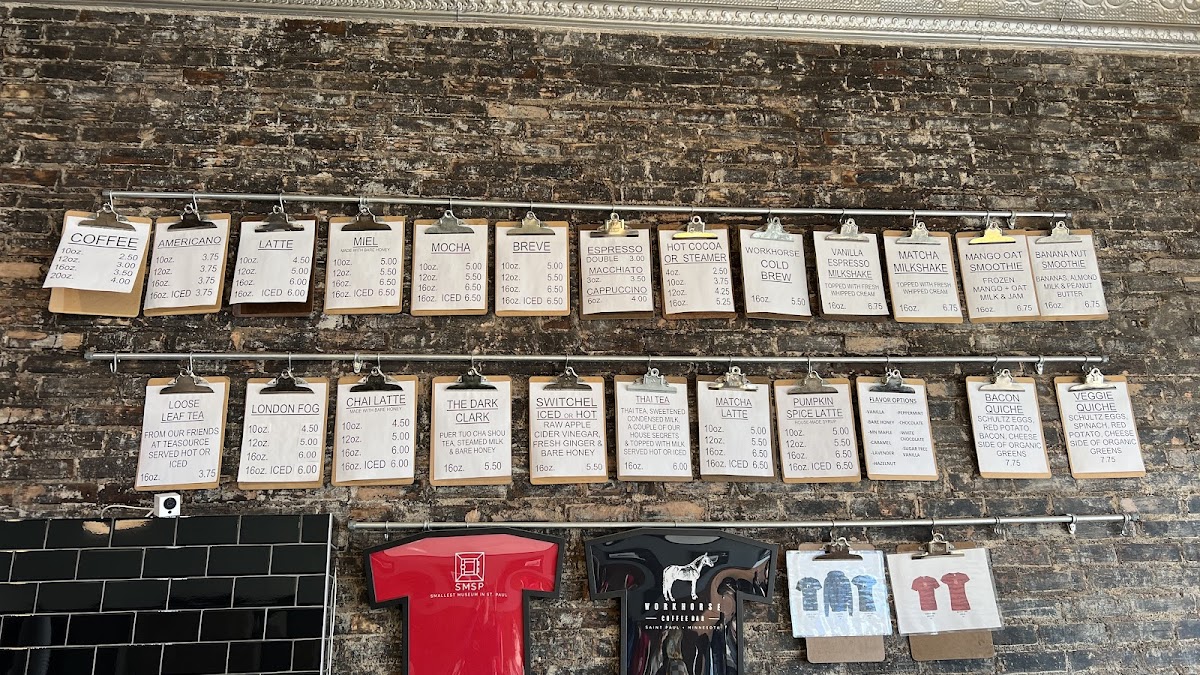 COFFEE
10oz. 2.50
12oz. 3.00
16oz. 3.50
20oz. 4.00
AMERICANO
10oz. 3.75
12oz. 3.75
16oz. 3.75
16oz. ICED 3.75
LATTE
10oz. 4.50
12oz. 5.00
16oz. 6.00
16oz. ICED 6.00
MIEL
MADE WITH BARE HONEY
10oz. 5.00
12oz. 5.50
16oz. 6.50
16oz. ICED 6.50
MOCHA
10oz. 5.00
12oz. 5.50
16oz. 6.50
16oz. ICED 6.50
BREVE
10oz. 5.00
12oz. 5.50
16oz. 6.50
16oz. ICED 6.50
ESPRESSO
DOUBLE 3.00
MACCHIATO
3oz. 3.50
CAPPUCCINO
6oz. 4.00
HOT COCOA
OR STEAMER
8oz. 2.50
10oz. 3.75
12oz. 4.25
16oz. 5.25
WORKHORSE
COLD
BREW
16oz. 5.50
VANILLA
ESPRESSO
MILKSHAKE
TOPPED WITH FRESH
WHIPPED CREAM
16oz. 6.75
MATCHA
MILKSHAKE
TOPPED WITH FRESH
WHIPPED CREAM
16oz. 6.75
MANGO OAT
SMOOTHIE
FROZEN
MANGO OAT
MILK & JAM
16oz. 6.75
BANANA NUT
SMOOTHIE
BANANAS, ALMOND
MILK & PEANUT
BUTTER
16oz. 6.75
LOOSE
LEAF TEA
FROM OUR FRIENDS
AT TEASOURCE
SERVED HOT OR
ICED
16oz. 3.75
LONDON FOG
10oz. 4.50
12oz. 5.00
16oz. 6.00
16oz. ICED 6.00
CHAI LATTE
MADE WITH BARE HONEY
10oz. 4.50
12oz. 5.00
16oz. 6.00
16oz. ICED 6.00
THE DARK
CLARK
PUER TUO CHA SHOU
TEA, STEAMED MILK
& BARE HONEY
16oz. 5.50
SWITCHEL
ICED OR HOT
RAW APPLE
CIDER VINEGAR,
FRESH GINGER &
BARE HONEY
16oz. 5.50
THAI TEA
THAI TEA, SWEETENED
CONDENSED MILK,
A COUPLE OF OUR
HOUSE SECRETS
& TOPPED WITH MILK
SERVED HOT OR ICED
16oz. 6.00
MATCHA
LATTE
10oz. 5.00
12oz. 5.50
16oz. 6.50
16oz. ICED 6.50
PUMPKIN
SPICE LATTE
HOUSE MADE SYRUP
10oz. 5.00
12oz. 5.50
16oz. 6.50
16oz. ICED 6.50
FLAVOR OPTIONS
-VANILLA
-BARE HONEY
-MN MAPLE
-CARAMEL
-LAVENDER
-HAZELNUT
-PEPPERMINT
-CHOCOLATE
-WHITE
CHOCOLATE
-SUGAR FREE
VANILLA
BACON
QUICHE
SCHULTZ EGGS,
RED POTATO,
BACON, CHEESE
SIDE OF ORGANIC
GREENS
7.75
VEGGIE
QUICHE
SCHULTZ EGGS,
SPINACH, RED
POTATO, CHEESE
SIDE OF ORGANIC
GREENS
7.75
SMSP
SMALLEST MUSEUM IN ST. PAUL
WORKHORSE
COFFEE BAR
SAINT PAUL • MINNESOTA